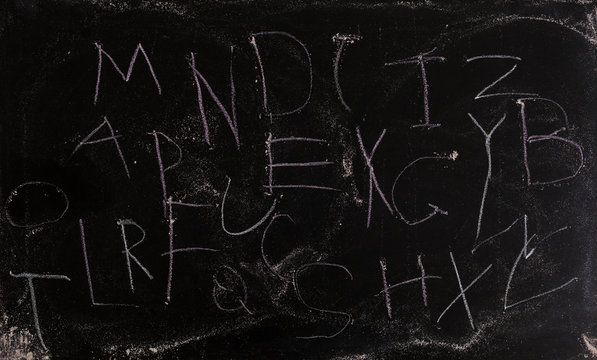 M N D I Z
A P E K G Y B
O U C
T L R F Q S H X